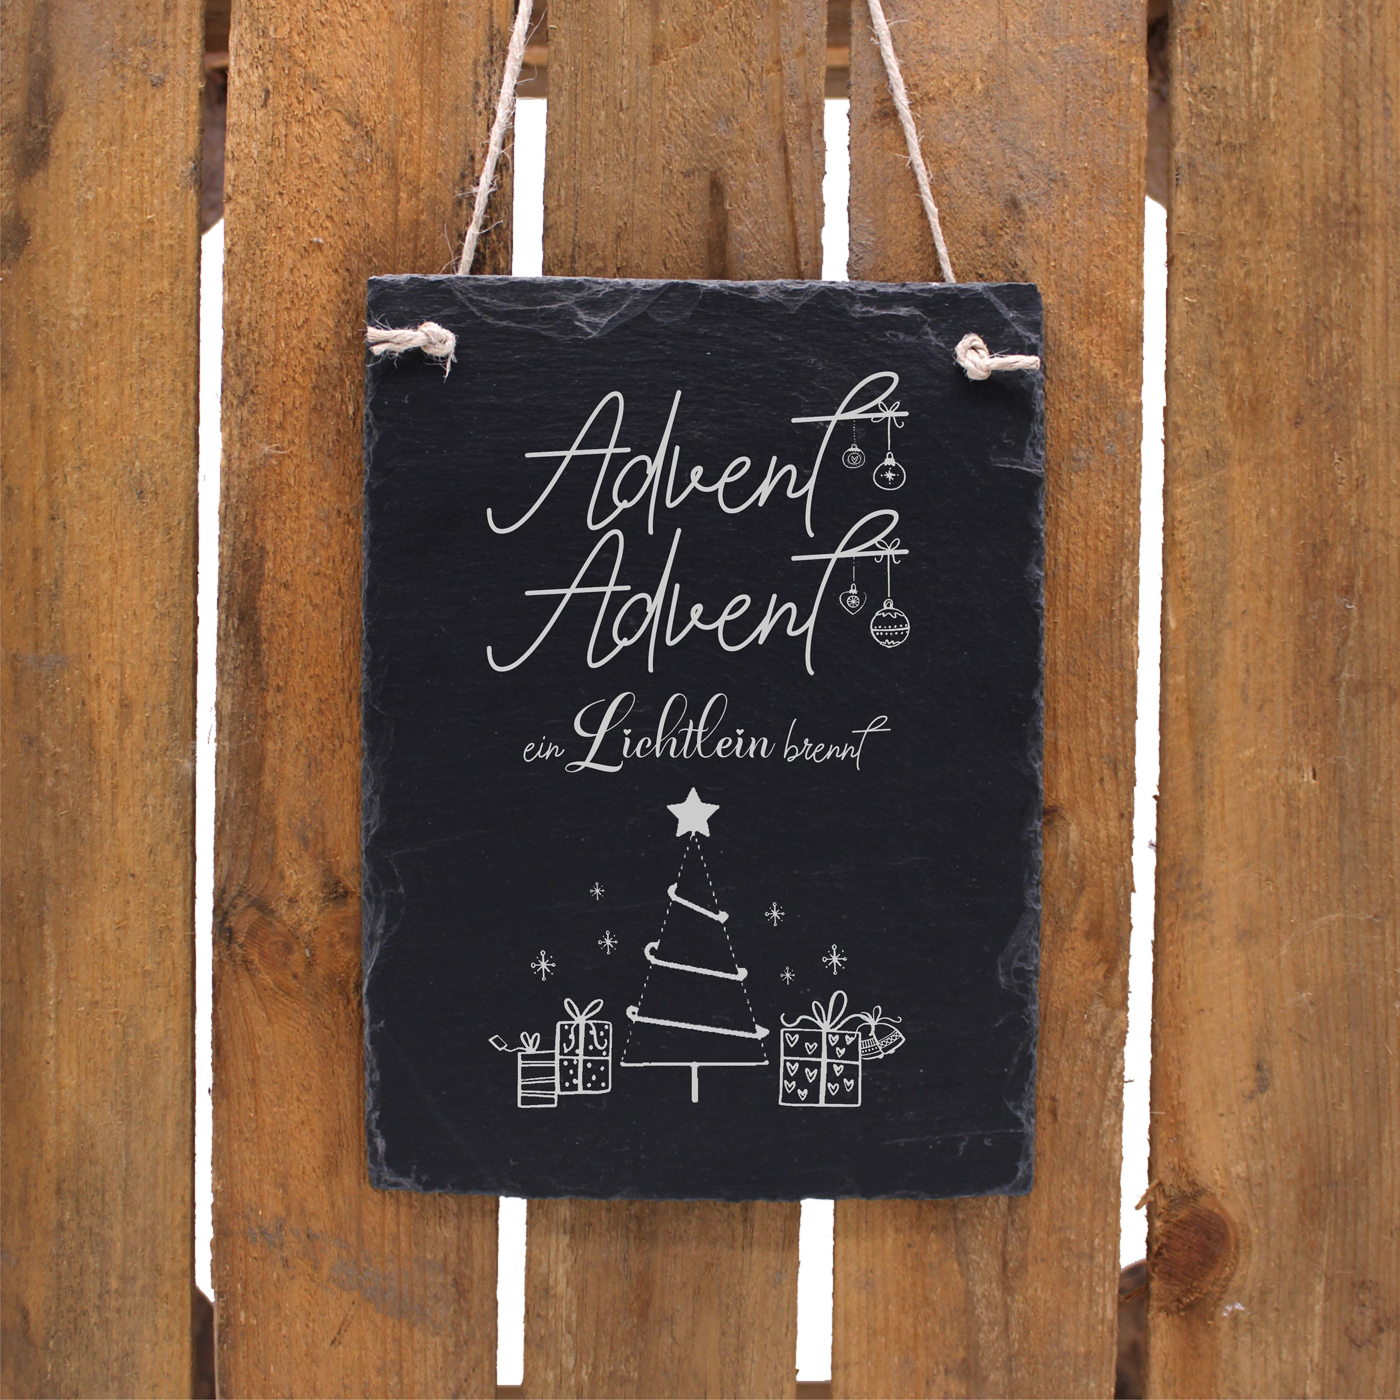 Advent
Advent
ein Lichtlein brennt